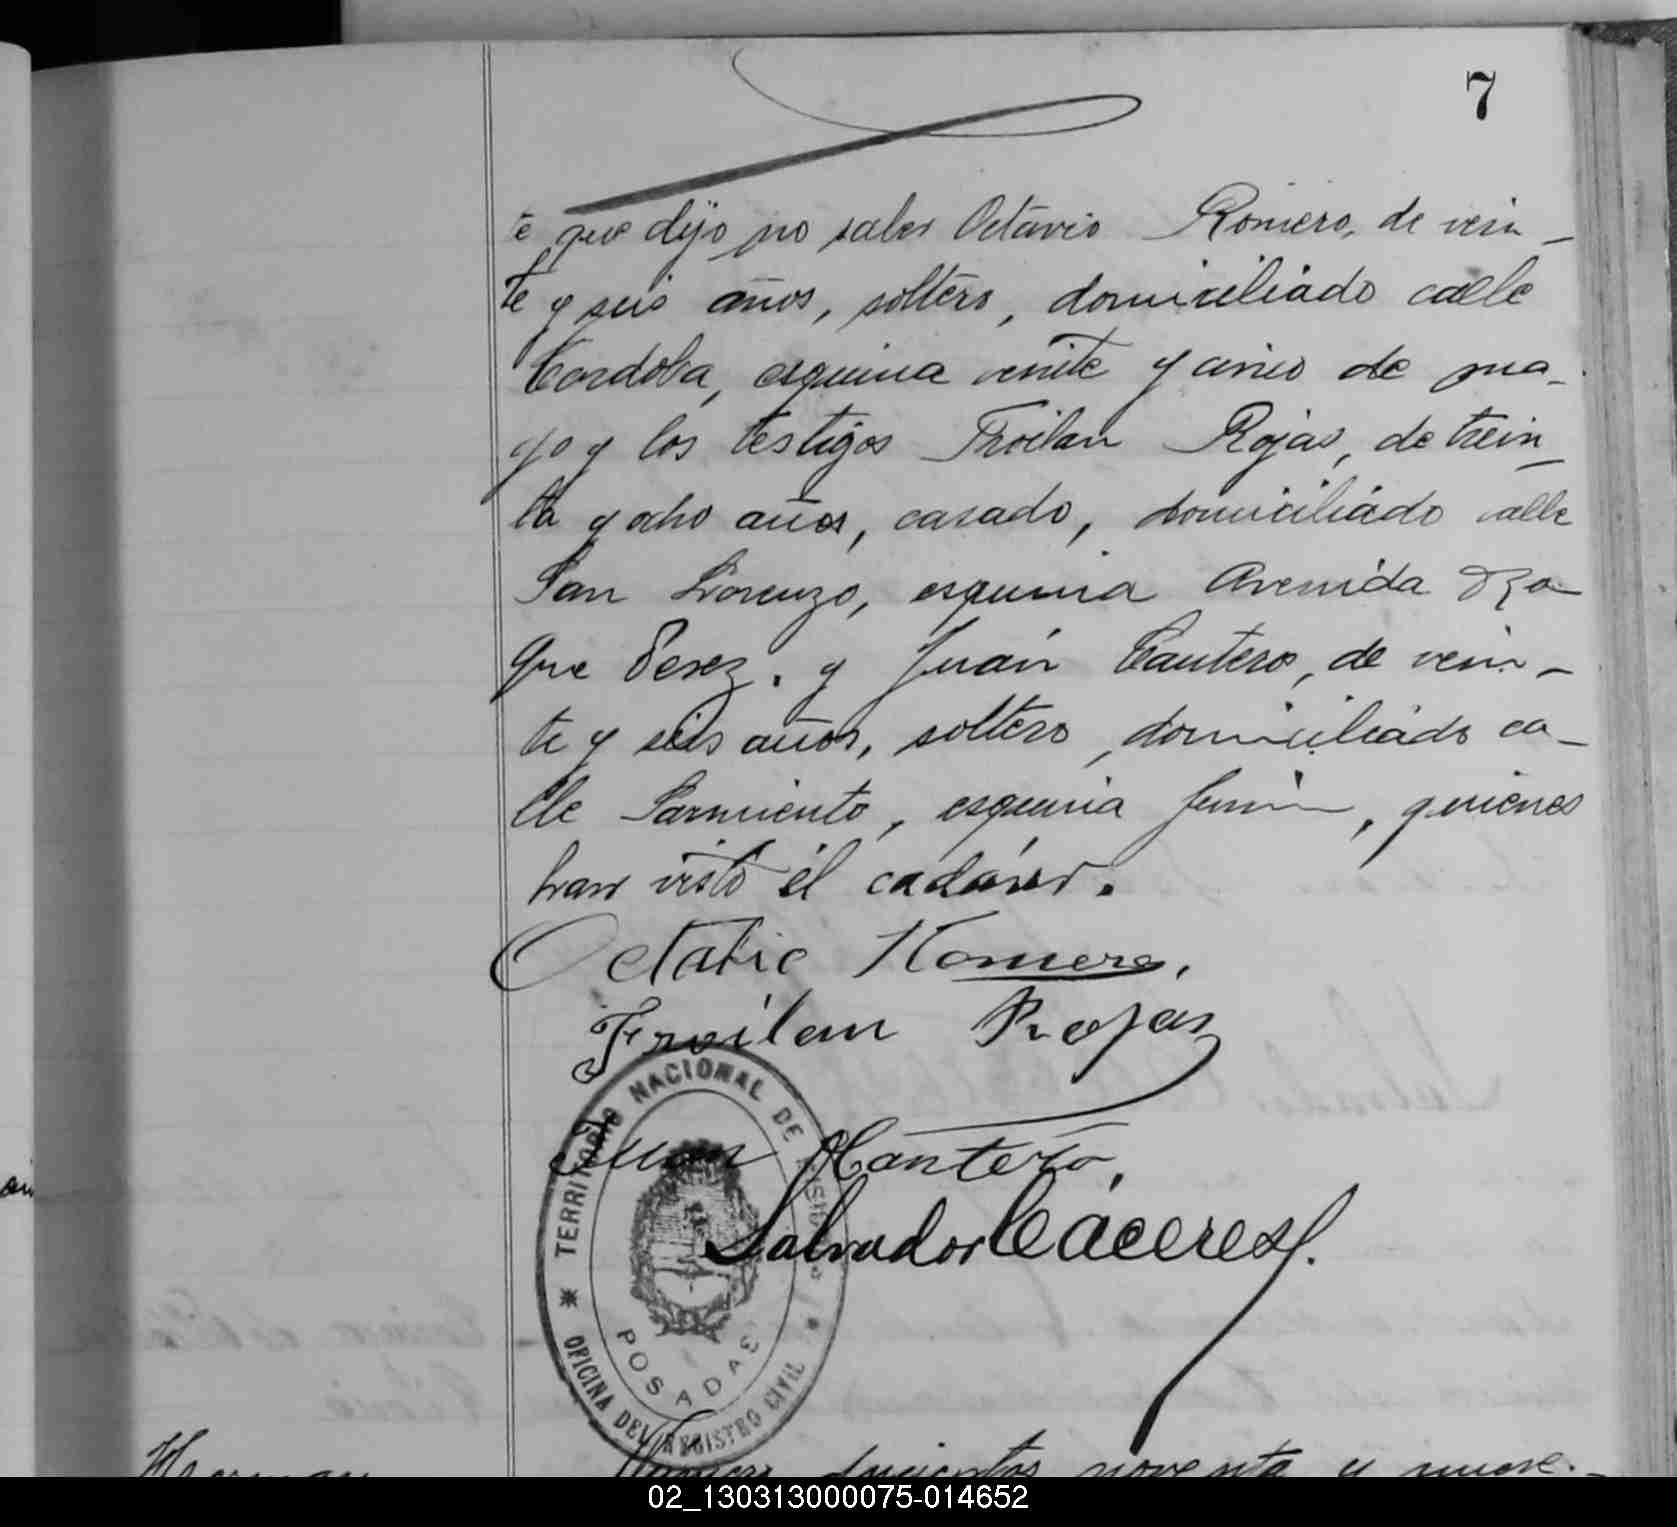 7
te que dijo no saber Octavio Romero, de vein-
te y seis años, soltero, domiciliado calle
Cordoba, esquina veinte y cinco de ma-
yo y los testigos Froilan Rojas, de trein-
ta y ocho años, casado, domiciliado calle
San Lorenzo, esquina Avenida Ro-
que Perez. y Juán Cantero, de vein-
te y seis años, soltero, domiciliado ca-
lle Sarmiento, esquina Junin, quienes
han visto el cadáver.
Octabio Romero.
Froilan Rojas
Juan Cantero,
Salvador Cáceres
TERRITORIO NACIONAL DE MISIONES
POSADAS
OFICINA DEL REGISTRO CIVIL
Herman
Número doscientos noventa y nueve.-
02_130313000075-014652